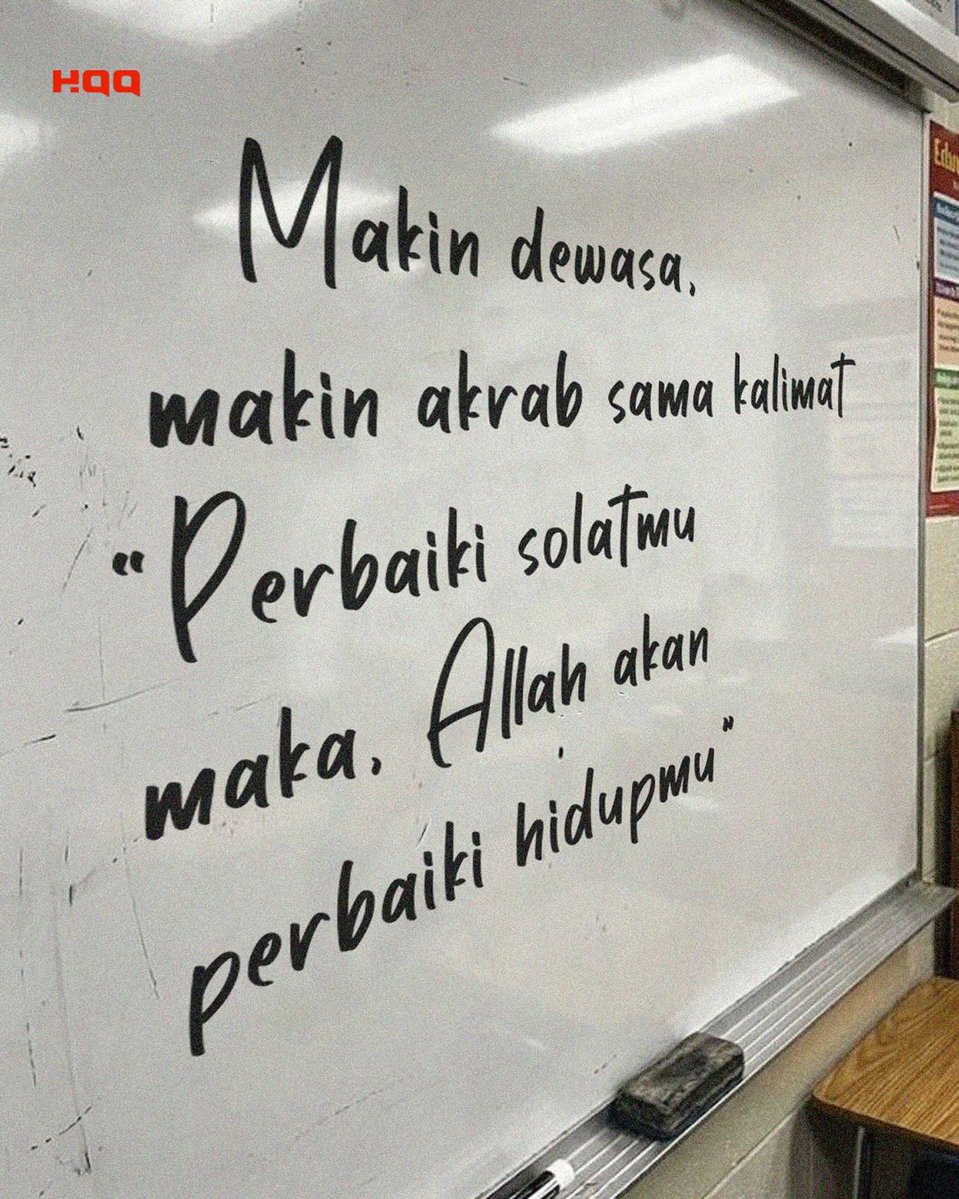 HQQ
Makin dewasa,
makin akrab sama kalimat
“Perbaiki solatmu
maka, Allah akan
perbaiki hidupmu”